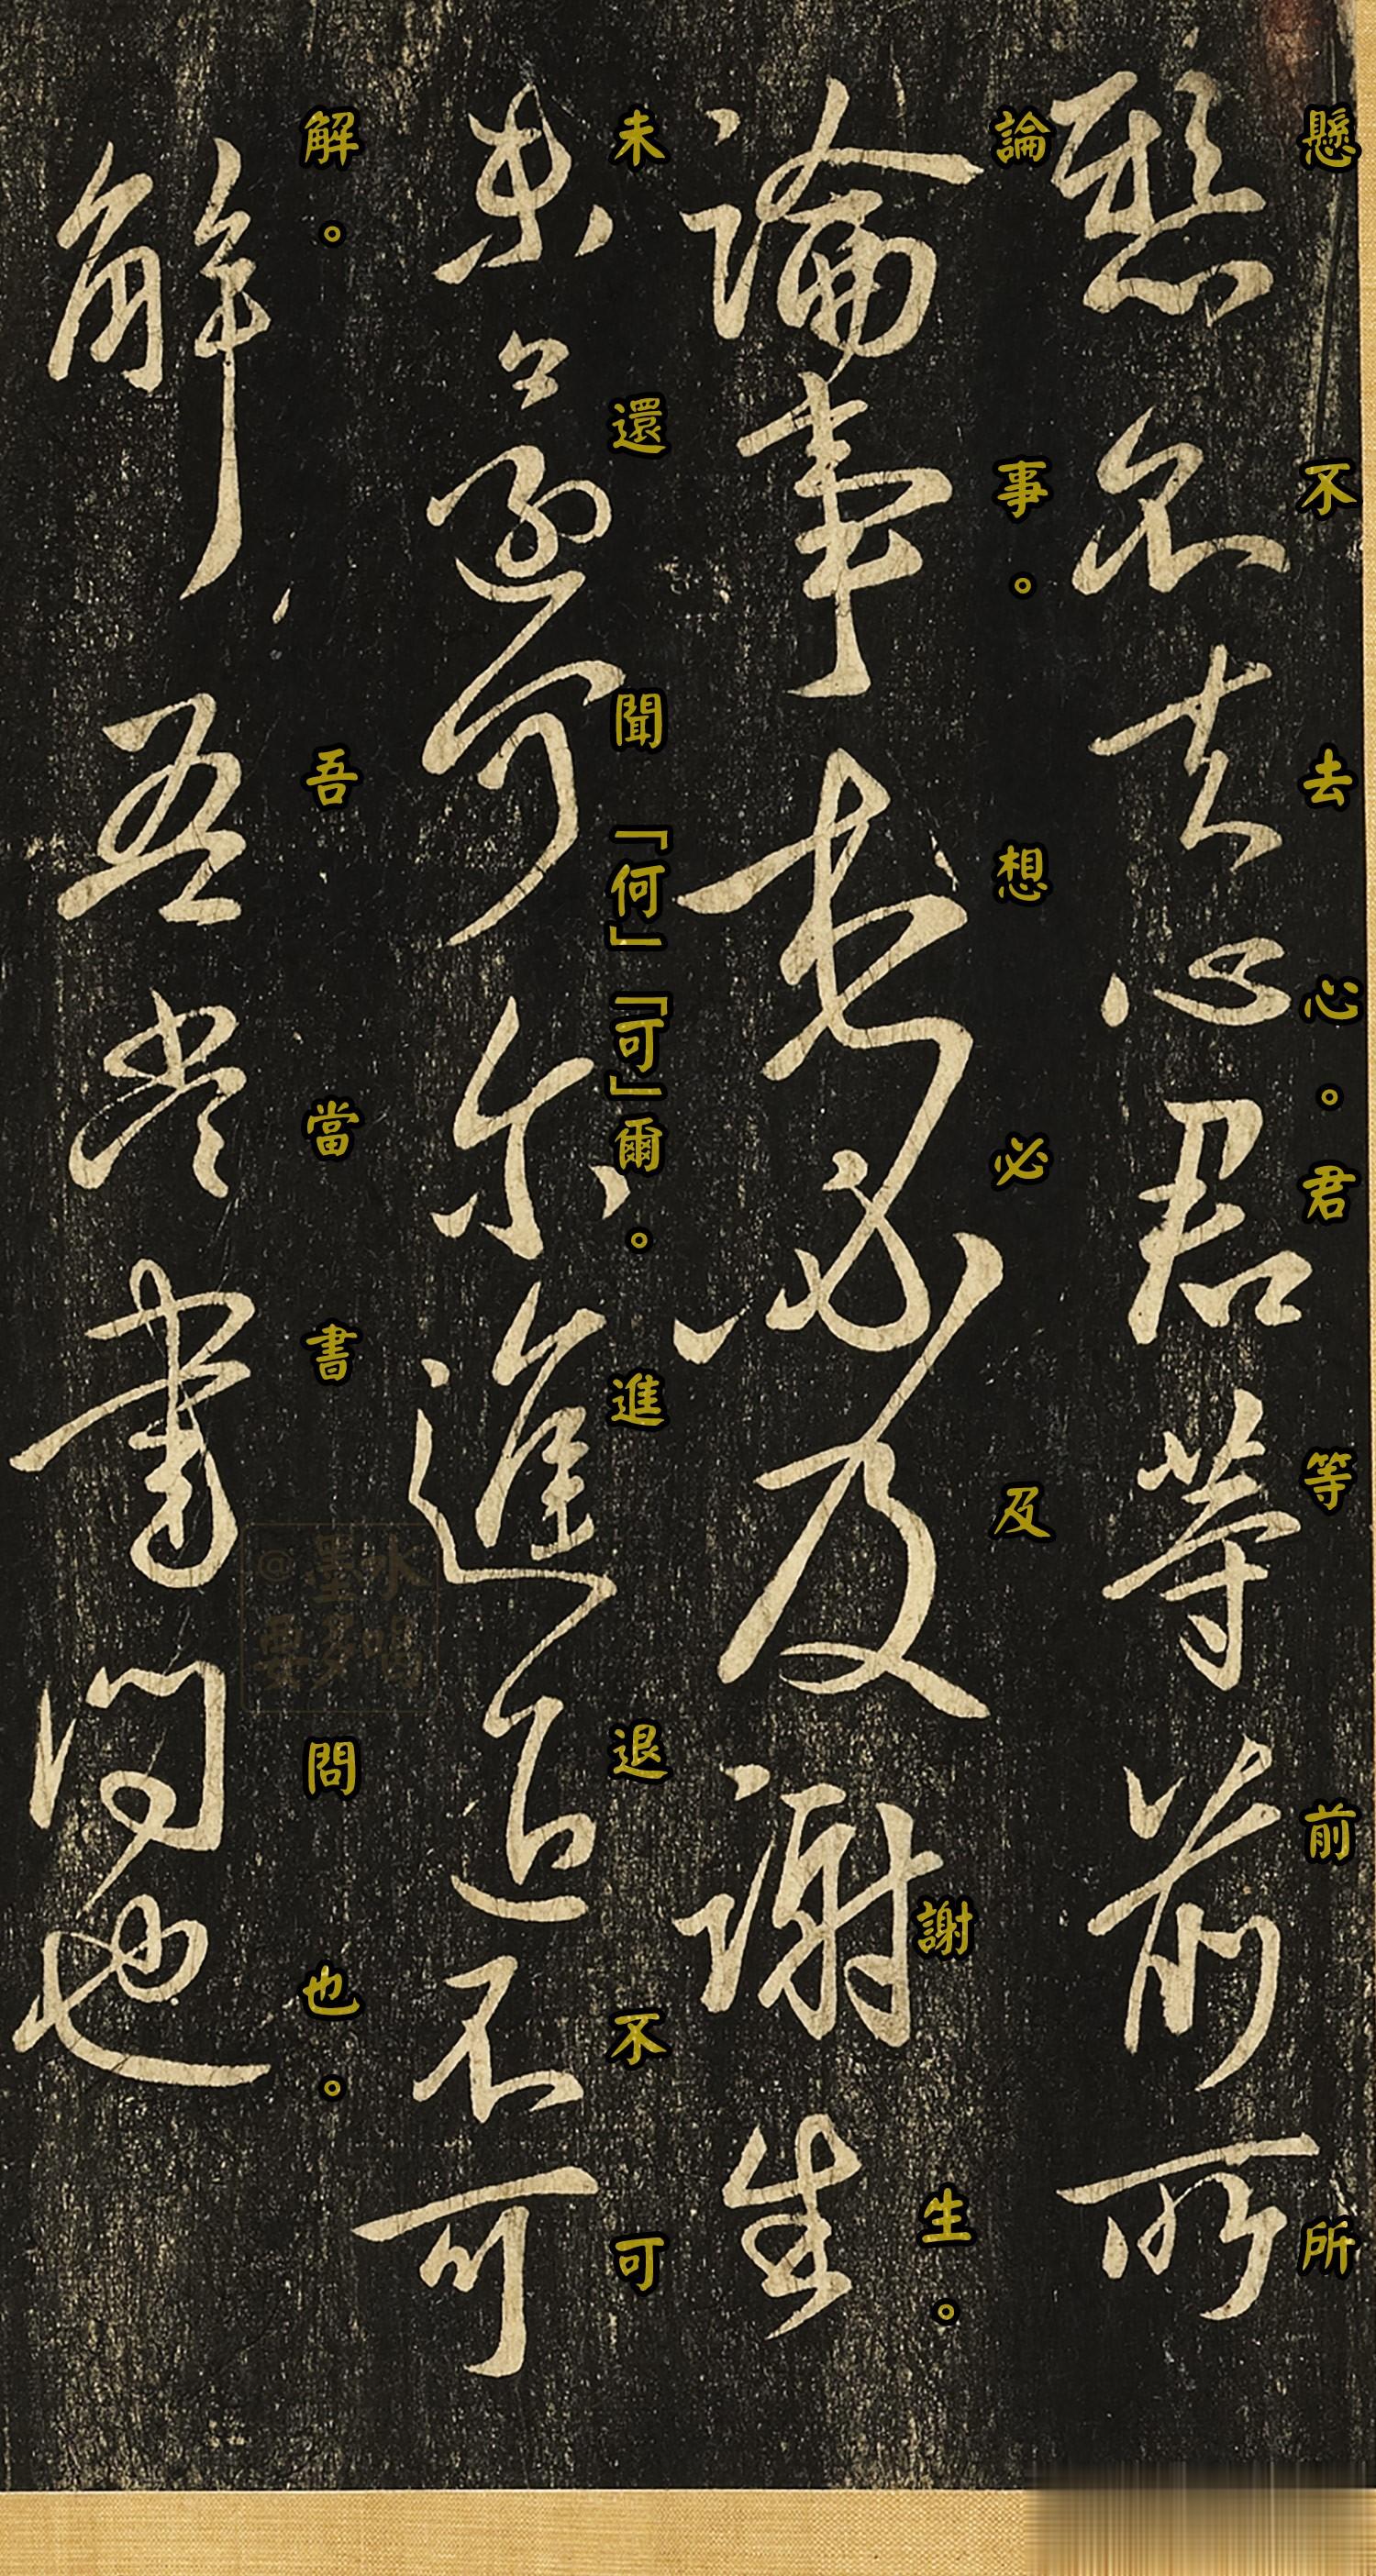 懸不去心。君等前所
論事。想必及謝生。
未還聞「何」「可」爾。進退不可
解。吾當書問也。
@墨水要多喝